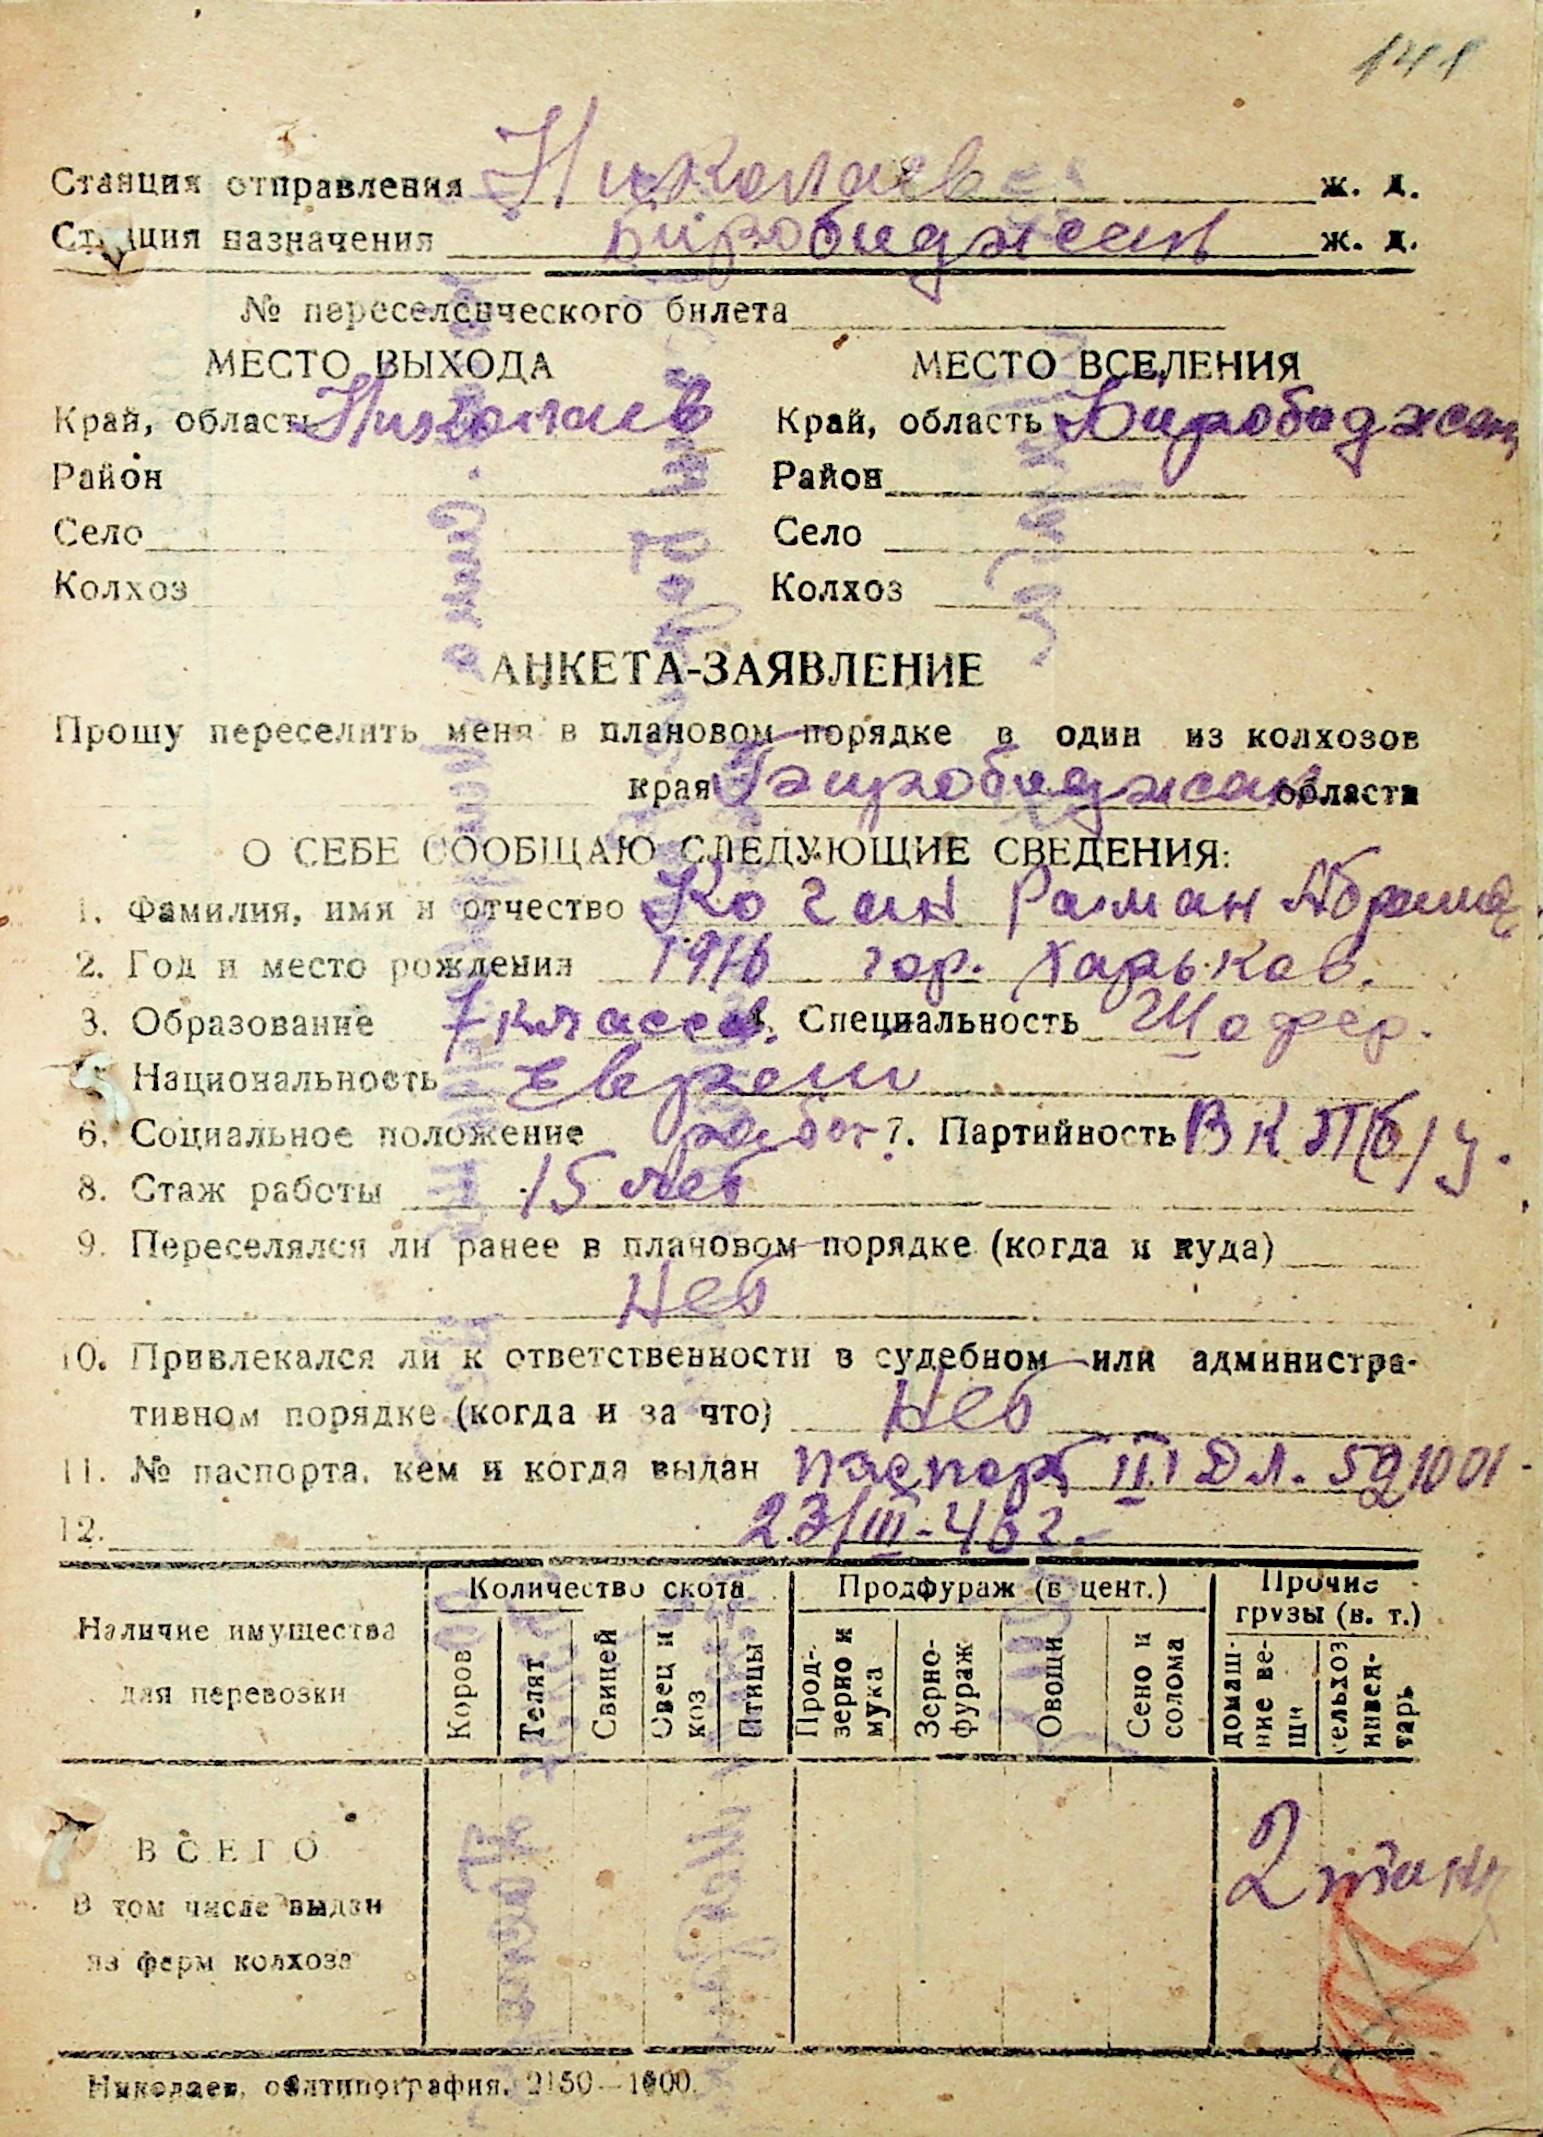 141
Станция отправления Николаев ж. д.
Станция назначения Биробиджан ж. д.
№ переселенческого билета
МЕСТО ВЫХОДА МЕСТО ВСЕЛЕНИЯ
Край, область Николаев Край, область Биробиджан
Район Район
Село Село
Колхоз Колхоз
АНКЕТА-ЗАЯВЛЕНИЕ
Прошу переселить меня в плановом порядке в один из колхозов
края Биробиджан области
О СЕБЕ СООБЩАЮ СЛЕДУЮЩИЕ СВЕДЕНИЯ:
1. Фамилия, имя и отчество Коган Раман Абрамо
2. Год и место рождения 1916 гор. Харьков.
3. Образование 7 классов. Специальность Шофер.
5 Национальность Еврей
6. Социальное положение работ 7. Партийность ВКП(б)
8. Стаж работы 15 лет
9. Переселялся ли ранее в плановом порядке (когда и куда)
Нет
10. Привлекался ли к ответственности в судебном или администра-
тивном порядке (когда и за что) Нет
11. № паспорта, кем и когда выдан паспорт
12. 23/III-46 г.
Наличие имущества для перевозки Количество скота Продфураж (в цент.) Прочие грузы (в. т.)
Коров Телят Свиней Овец и коз Птицы Прод-зерно и мука Зерно-фураж Овощи Сено и солома домаш-ние ве-щи сельхоз инвен-тарь
ВСЕГО 2 тонн
В том числе выдан
из ферм колхоза
Николаев, облтипография. 2150—1000.